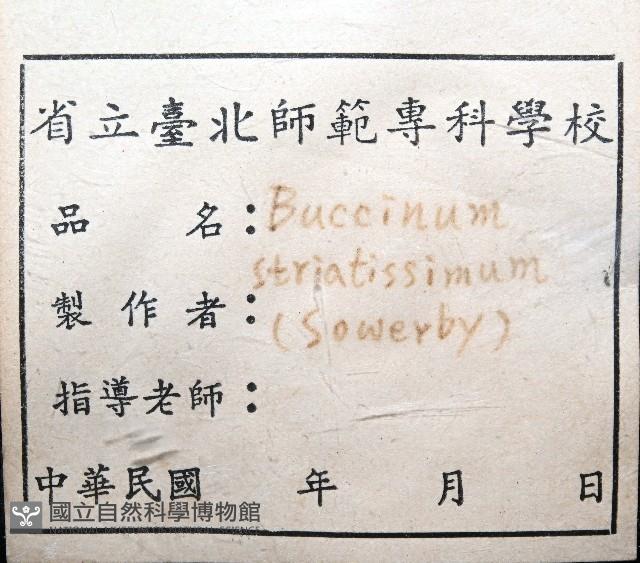 省立臺北師範專科學校
品名：Buccinum
striatissimum
製作者：(Sowerby)
指導老師：
中華民國 年 月 日
國立自然科學博物館
NATIONAL MUSEUM OF NATURAL SCIENCE